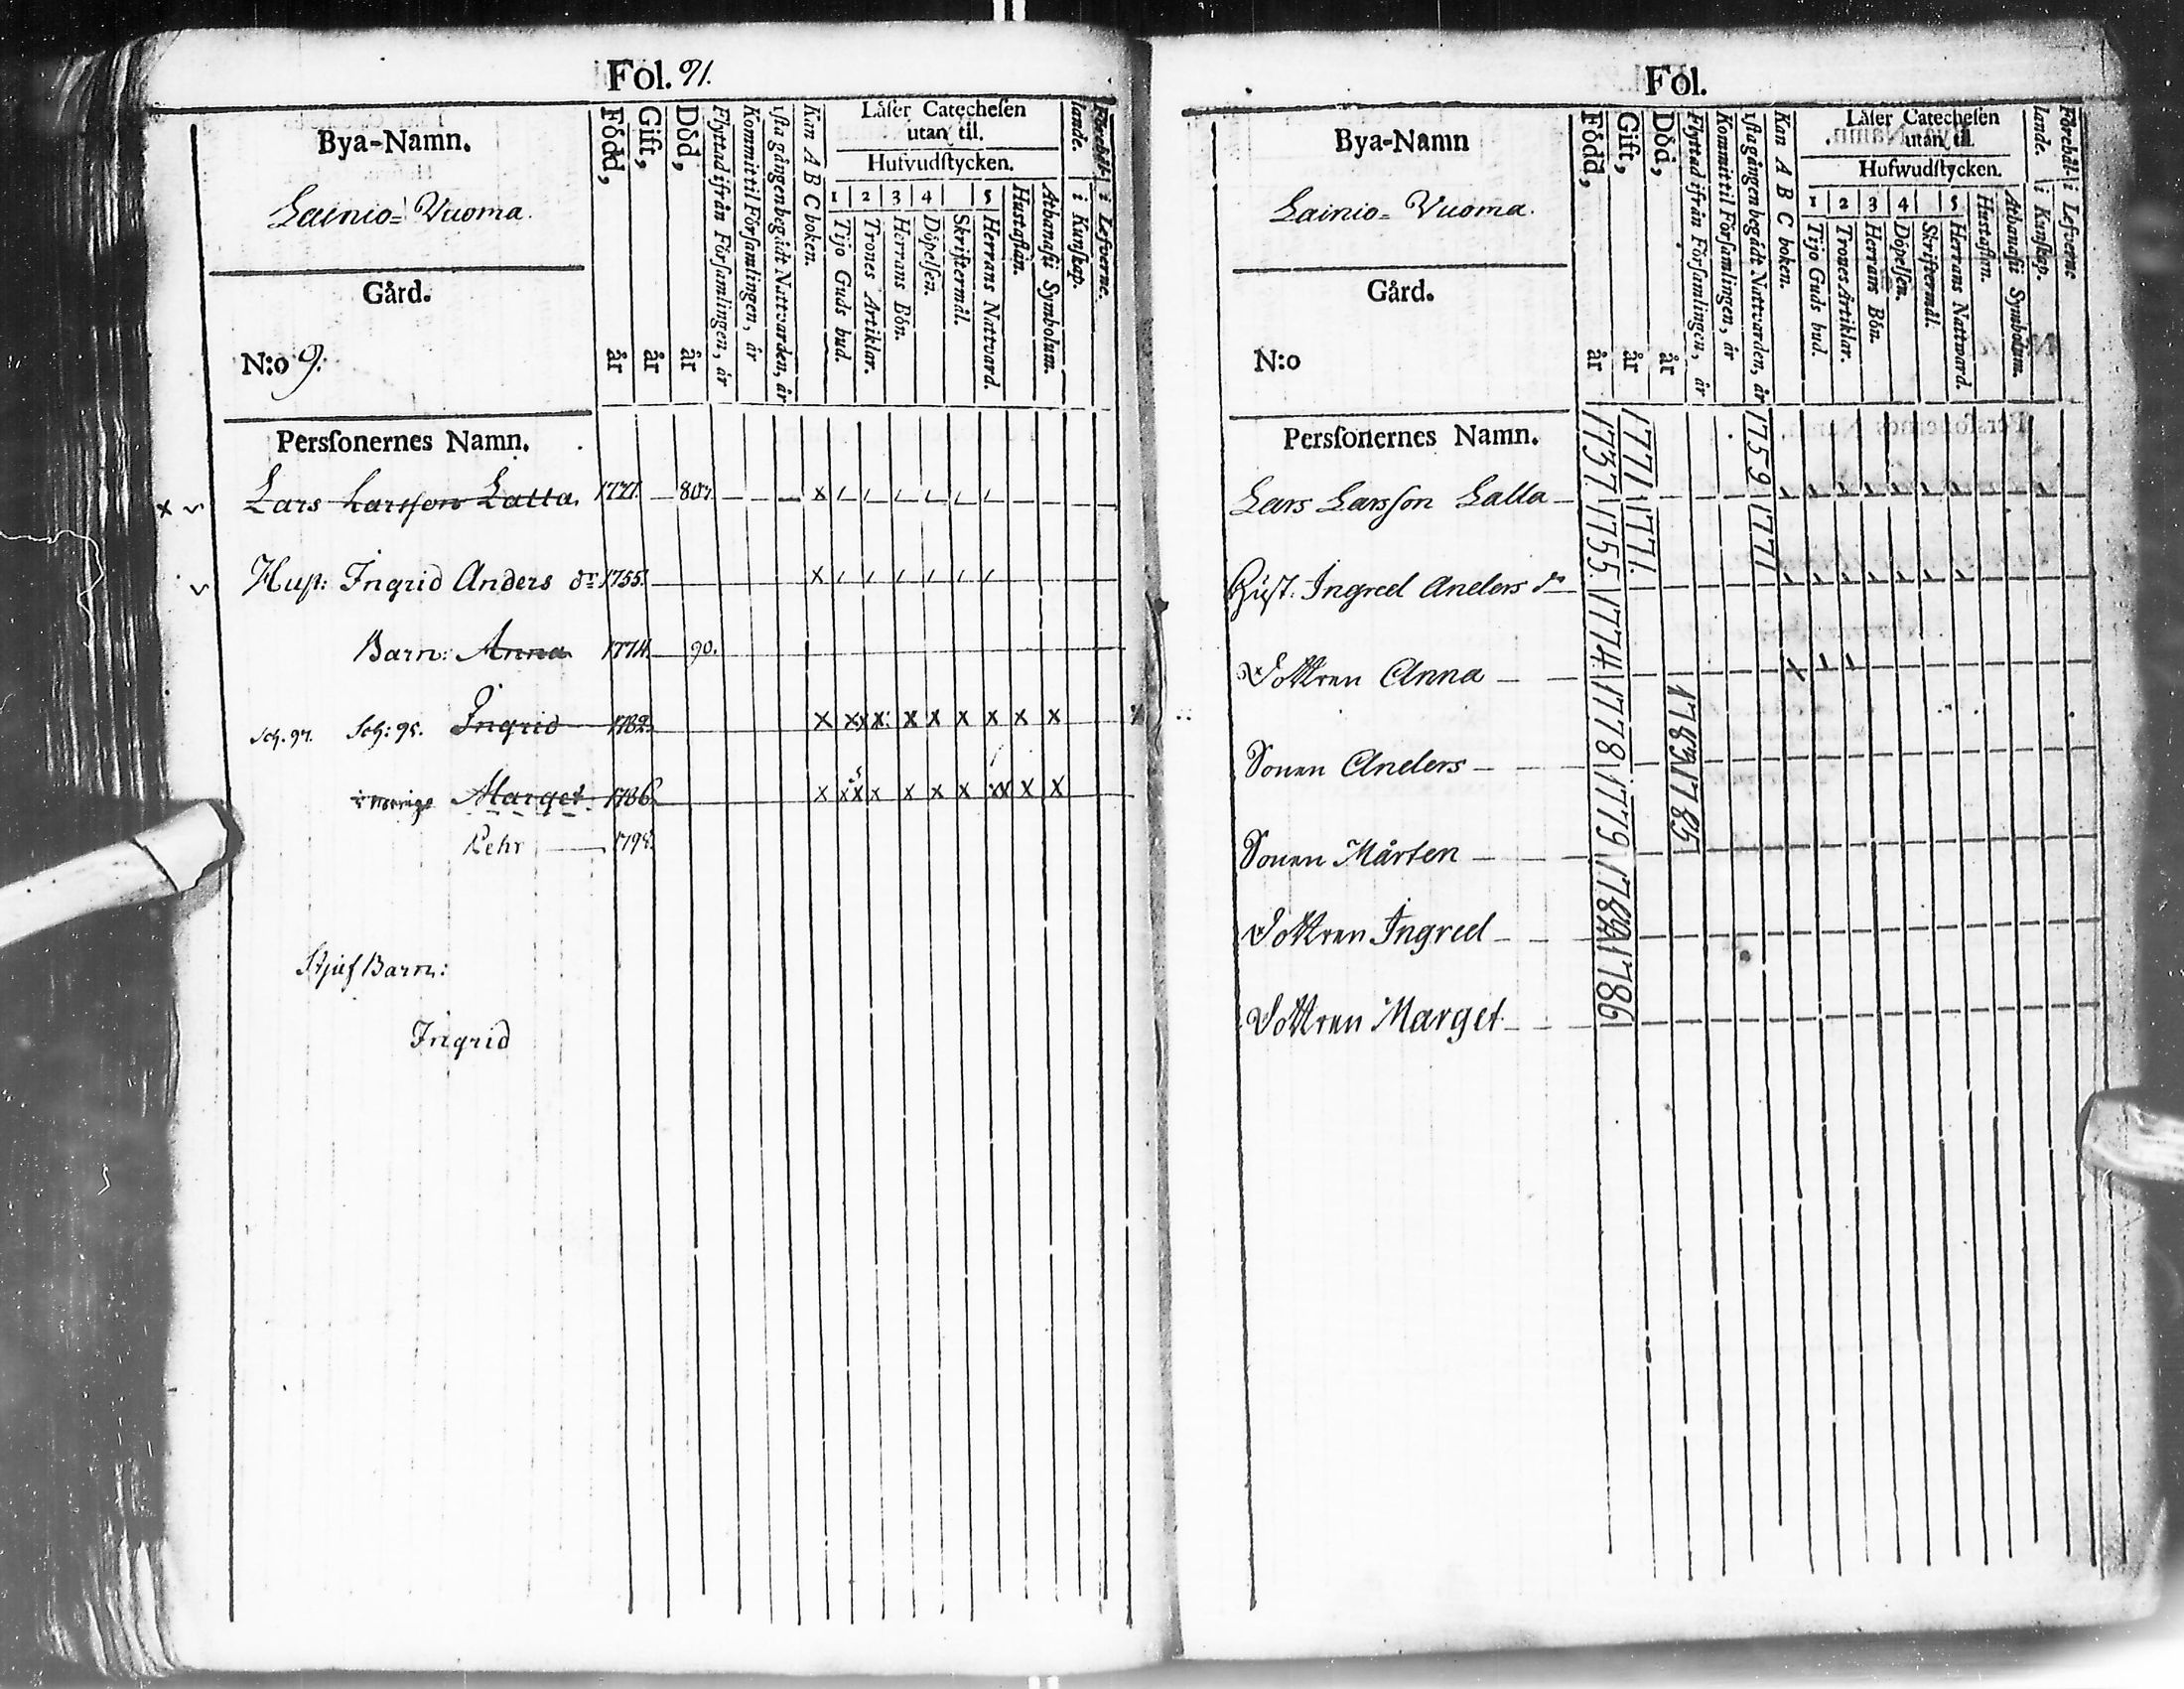 Fol. 91.
Bya-Namn.
Lainio= Vuoma.
Gård.
N:o 9.
Född, år
Gift, år
Död, år
Flyttad ifrån Församlingen, år
Kommit til Församlingen, år
1sta gången begådt Nattvarden, år
Kan A B C boken.
Låser Catechesen
utan til.
Hufvudstycken.
1 2 3 4 5
Tijo Guds bud.
Trones Artiklar.
Herrans Bön.
Döpelsen.
Skriftermål.
Herrans Nattvard.
Hustaflan.
Athanasii Symbolum.
Förehållande.
i Kunskap.
i Lefverne.
Perssonernes Namn.
x Lars Larsson Lalla. — 807. x
Hust: Ingrid Anders dr 1755. x
Barn: Anna 1774. 90.
Sch. 97. Sch: 95. Ingrid 1782. x xxx x x x x x x
Marget 1786. x xxx x x x xx x x
Pehr — 1795.
Stjuf Barn:
Ingrid
Fol.
Bya-Namn
Lainio= Vuoma.
Gård.
N:o
Född, år
Gift, år
Död, år
Flyttad ifrån Församlingen, år
Kommit til Församlingen, år
1sta gången begådt Nattvarden, år
Kan A B C boken.
Låser Catechesen
utan til.
Hufwudstycken.
1 2 3 4 5
Tijo Guds bud.
Trones Artiklar.
Herrans Bön.
Döpelsen.
Skriftermål.
Herrans Nattvard.
Hustaflan.
Athanasii Symbolum.
Förehållande.
i Kunskap.
i Lefverne
Perssonernes Namn.
Lars Larsson Lalla — 1737 1771 1759
Hust. Ingred Anders dr 1755. 1771. 1771
Dottren Anna — 1774 x
Sonen Anders — 1778 1783
Sonen Mårten — 1779 1785
Dottren Ingred —
Dottren Marget — 1786